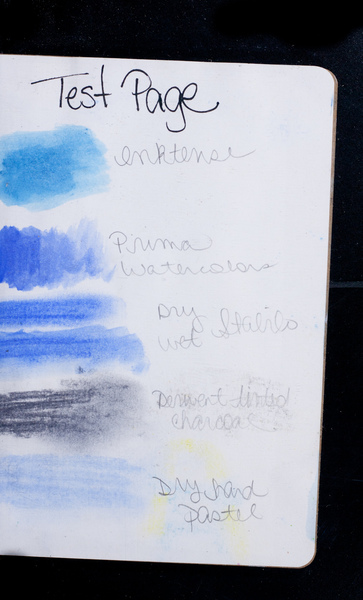 Test Page
inktense
Prima
Watercolors
Dry
Stabilo
wet
Derwent tinted
charcoal
Dry hard
pastel